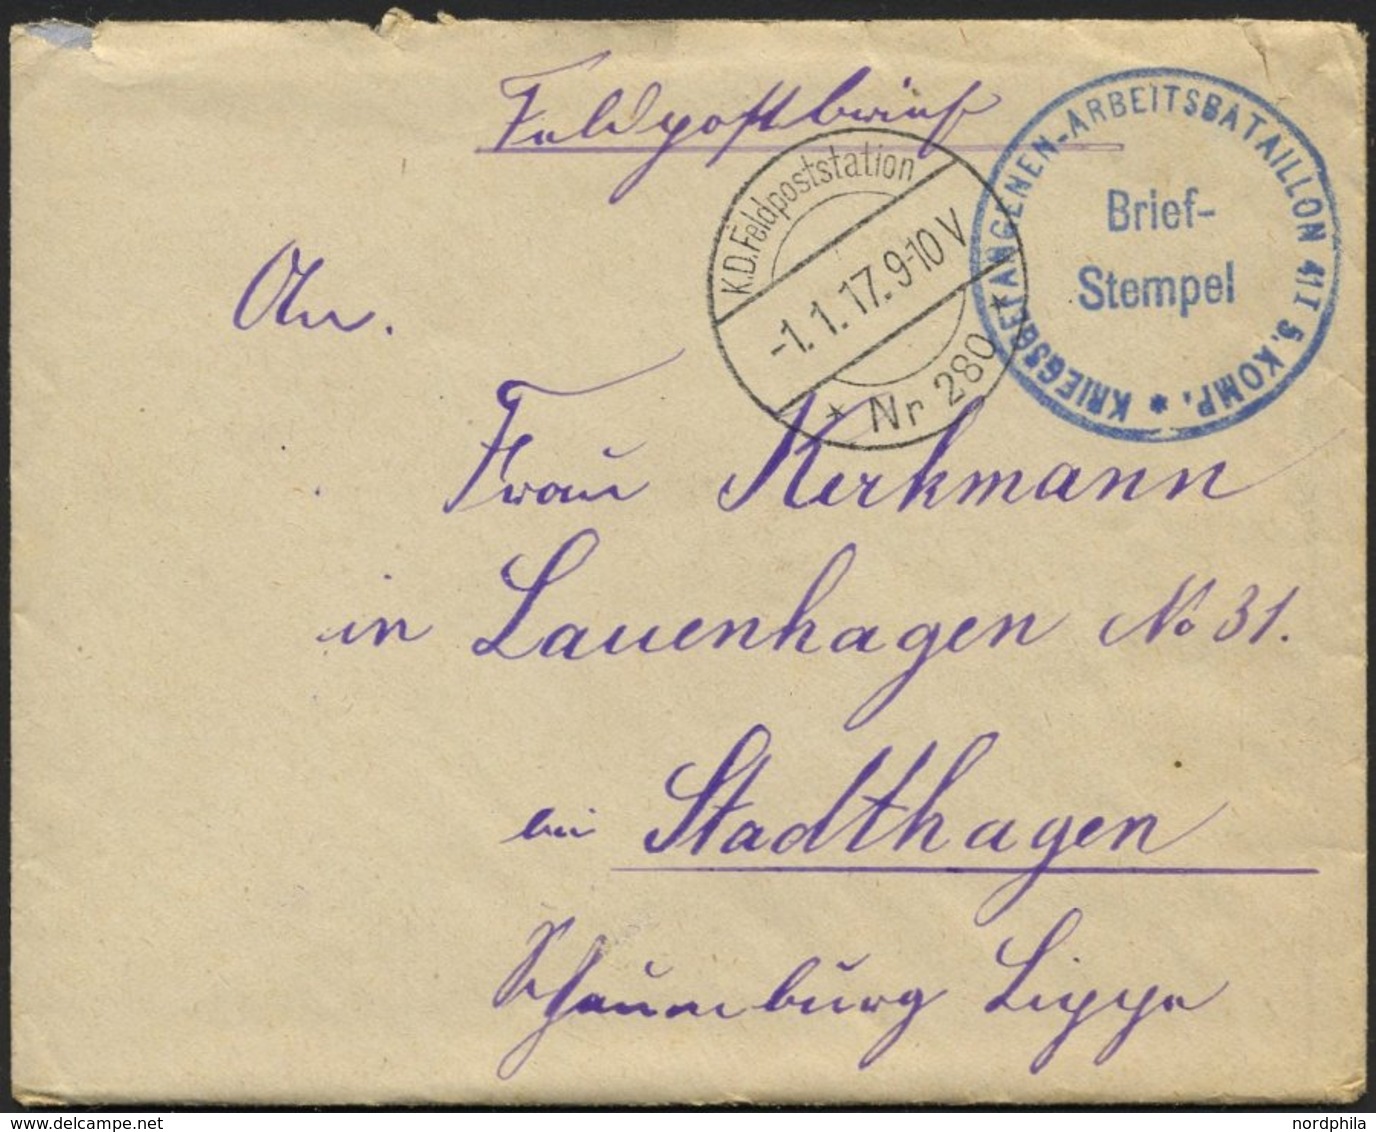 Feldpostbrief
K.D. Feldpoststation
-1.1.17. 9-10 V
* Nr 280 *
KRIEGSGEFANGENEN-ARBEITSBATAILLON 41 I 5. KOMP. *
Brief-
Stempel
An.
Frau Kerkmann
in Lauenhagen No 31.
bei Stadthagen
Schaumburg Lippe
nordphila